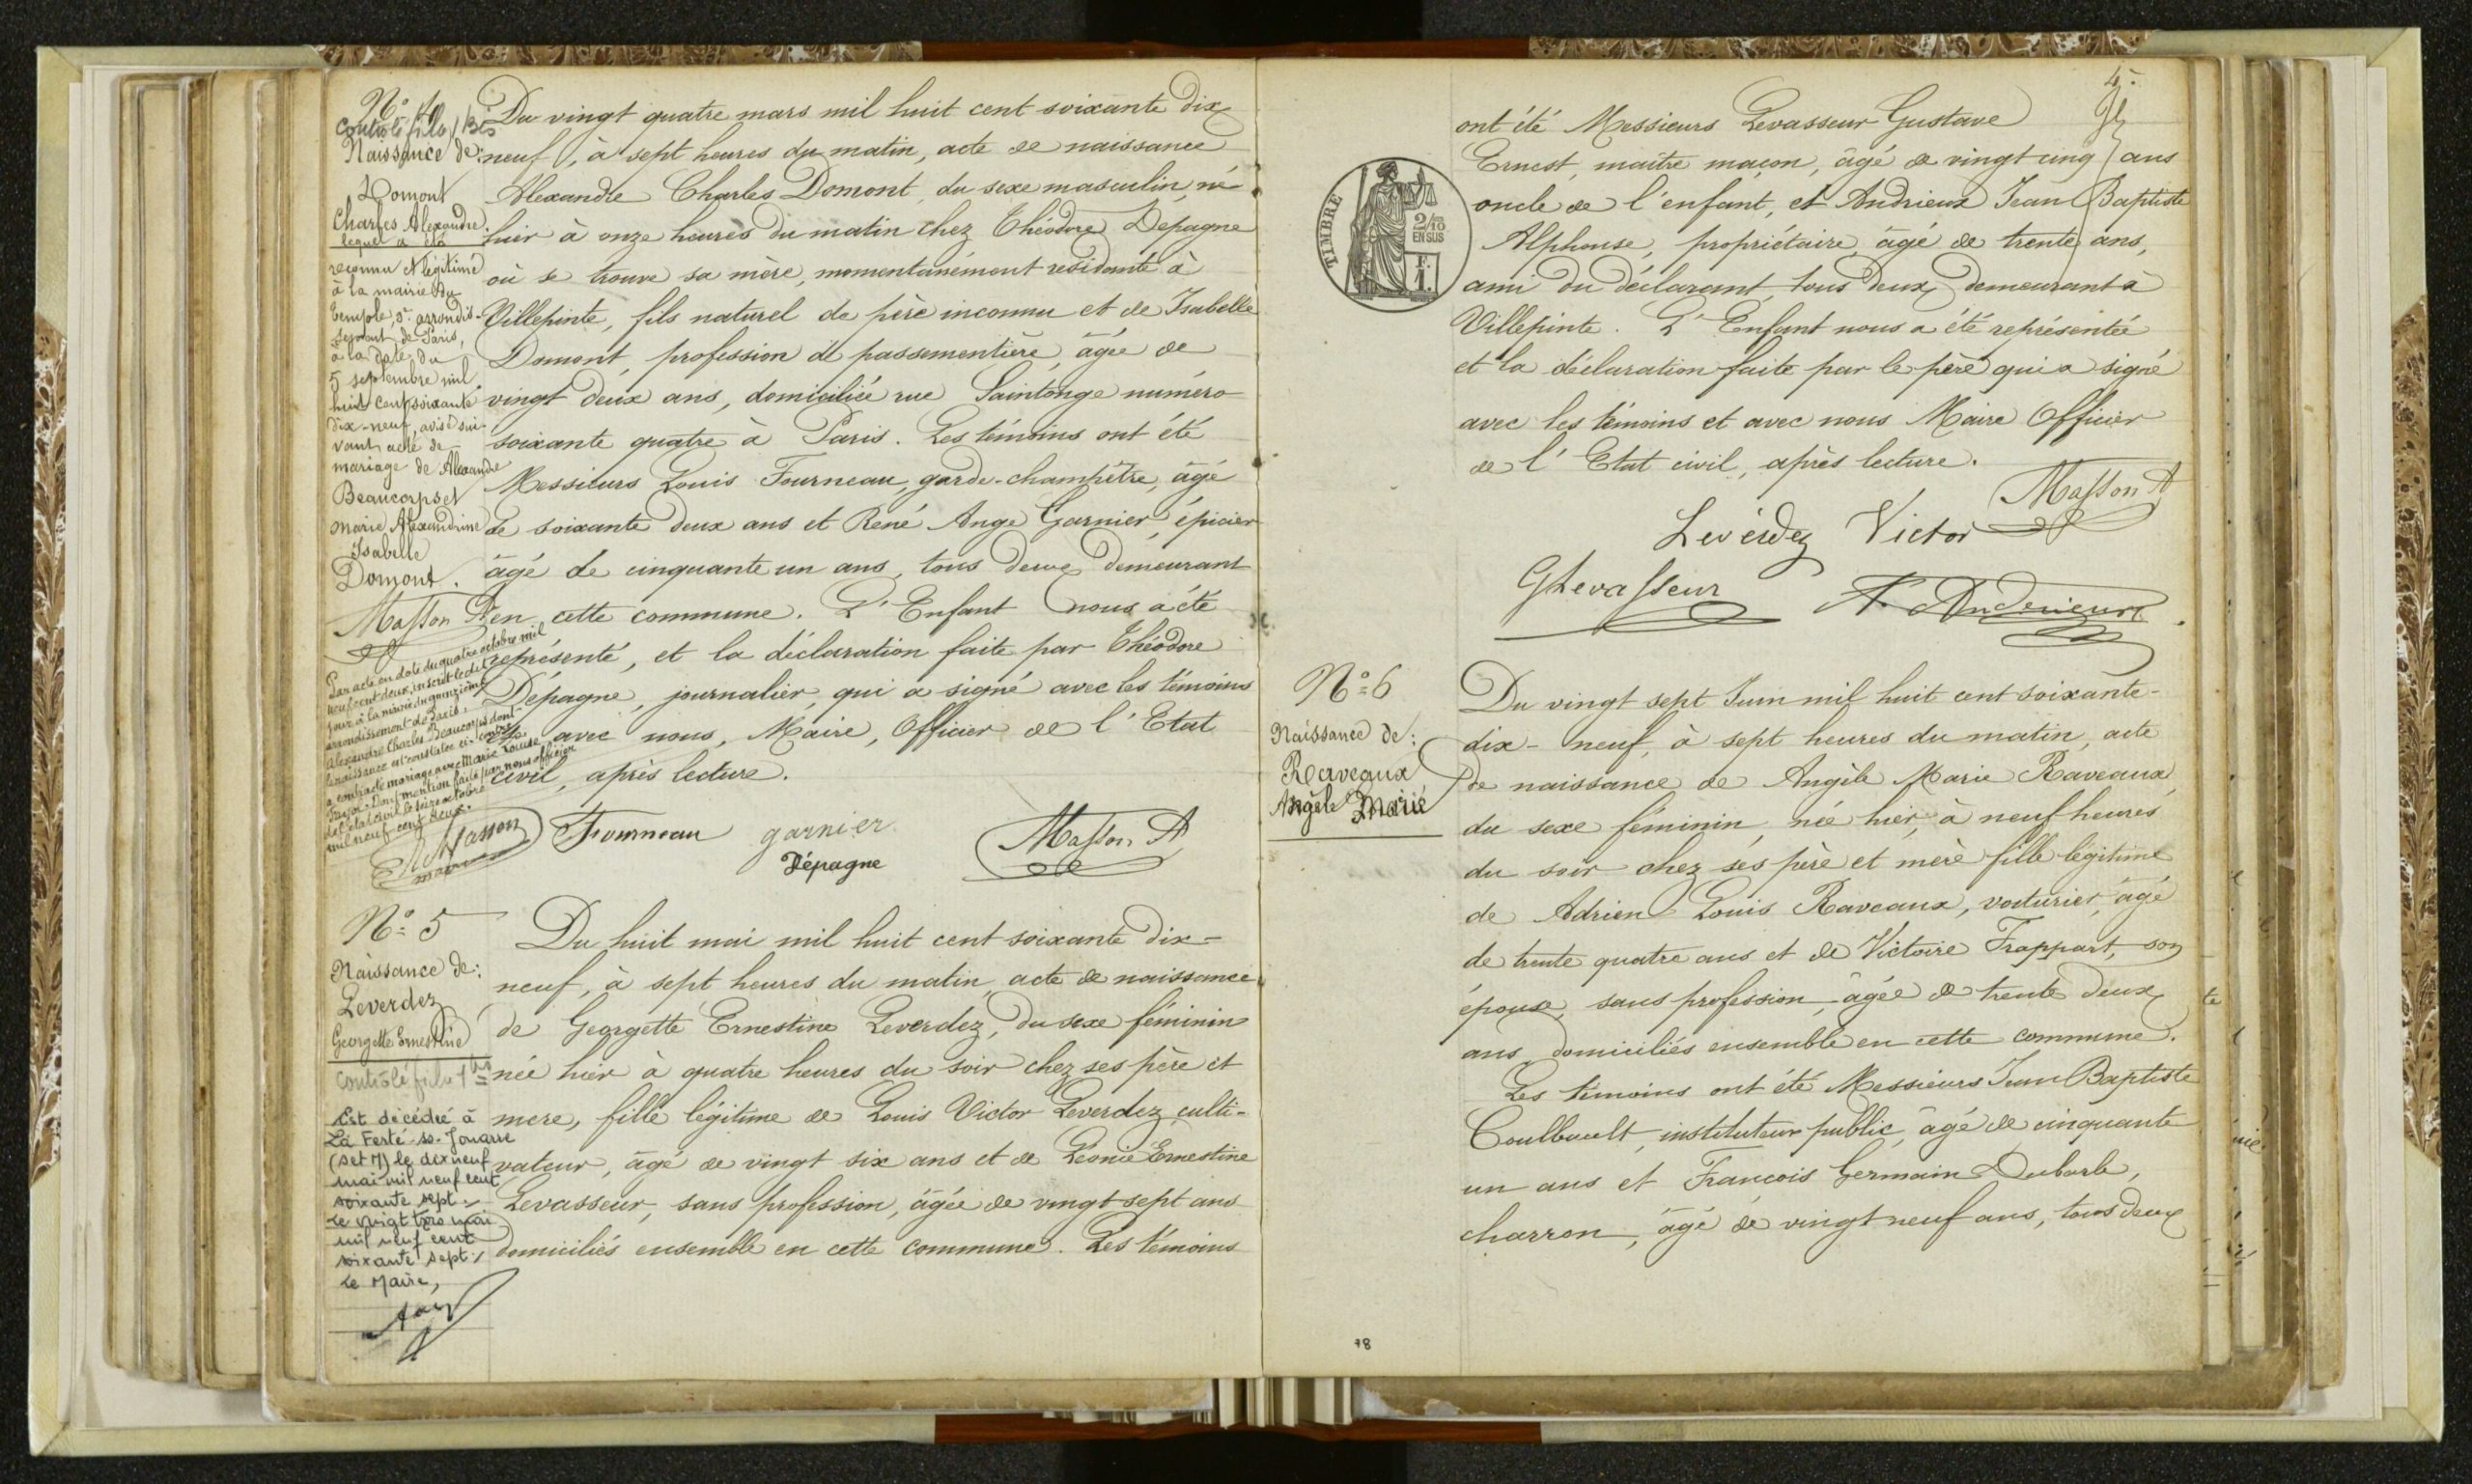 N° 4
Contrôlé filo 1 Bis
Naissance de:
Domont
Charles Alexandre
lequel a été
reconnu et légitimé
à la mairie du
Temple, 3e arrondis-
sement de Paris,
à la date du
5 septembre mil
huit cent soixante
dix-neuf, avisé sui-
vant acte de
mariage de Alexandre
Beaucorps et
Marie Alexandrine
Isabelle
Domont.
Masson A
Par acte en date du quatre octobre mil
neuf cent deux, inscrit le dit
jour à la mairie du quinzième
arrondissement de Paris,
Alexandre Charles Beaucorps dont
la naissance est constatée ci-contre
a contracté mariage avec Marie Louise
Dont mention faite par nous officier
de l'état civil le seize octobre
mil neuf cent deux.
Masson
maire
Du vingt quatre mars mil huit cent soixante dix
neuf, à sept heures du matin, acte de naissance
Alexandre Charles Domont, du sexe masculin, né
hier à onze heures du matin chez Théodore Depagne
où se trouve sa mère, momentanément residante à
Villepinte, fils naturel de père inconnu et de Isabelle
Domont, profession de passementière, âgée de
vingt deux ans, domiciliée rue Saintonge numéro
soixante quatre à Paris. Les témoins ont été
Messieurs Louis Fourneau, garde-champêtre, âgé
de soixante deux ans et René Ange Garnier, épicier
âgé de cinquante un ans, tous deux demeurant
en cette commune. L'Enfant nous a été
représenté, et la déclaration faite par Théodore
Dépagne, journalier, qui a signé avec les témoins
et avec nous, Maire, Officier de l'Etat
civil, après lecture.
Fourneau garnier Masson A
Dépagne
N° 5
Naissance de:
Leverdez
Georgette Ernestine
Contrôlé filo 1 bis
Est décédée à
La Ferté-ss-Jouarre
(S et M) le dix neuf
mai mil neuf cent
soixante sept.
Le vingt trois mai
mil neuf cent
soixante sept.
Le Maire,
Du huit mai mil huit cent soixante dix-
neuf, à sept heures du matin, acte de naissance
de Georgette Ernestine Leverdez, du sexe féminin
née hier à quatre heures du soir chez ses père et
mere, fille légitime de Louis Victor Leverdez, culti-
vateur, âgé de vingt six ans et de Léonie Ernestine
Levasseur, sans profession, âgée de vingt sept ans
domiciliés ensemble en cette commune. Les témoins
TIMBRE
2/10
EN SUS
F.
1.
ont été Messieurs Levasseur Gustave
Ernest, maître maçon, âgé de vingt cinq ans
oncle de l'enfant, et Andrieux Jean Baptiste
Alphonse, propriétaire, âgé de trente ans,
ami du déclarant, tous deux demeurant à
Villepinte. L'Enfant nous a été représentée
et la déclaration faite par le père qui a signé
avec les témoins et avec nous Maire Officier
de l'Etat civil, après lecture.
Masson A
Leverdez Victor
GLevasseur A. Andrieux
N° 6
Naissance de:
Raveaux
Angèle Marie
Du vingt sept Juin mil huit cent soixante-
dix-neuf, à sept heures du matin, acte
de naissance de Angèle Marie Raveaux,
du sexe féminin, née hier, à neuf heures
du soir chez ses père et mère fille légitime
de Adrien Louis Raveaux, voiturier, âgé
de trente quatre ans et de Victoire Frappart, son
épouse, sans profession, âgée de trente deux
ans domiciliés ensemble en cette commune.
Les témoins ont été Messieurs Jean Baptiste
Coulbault, instituteur public, âgé de cinquante
un ans et François Germain Dubarle,
charron, âgé de vingt neuf ans, tous deux
78